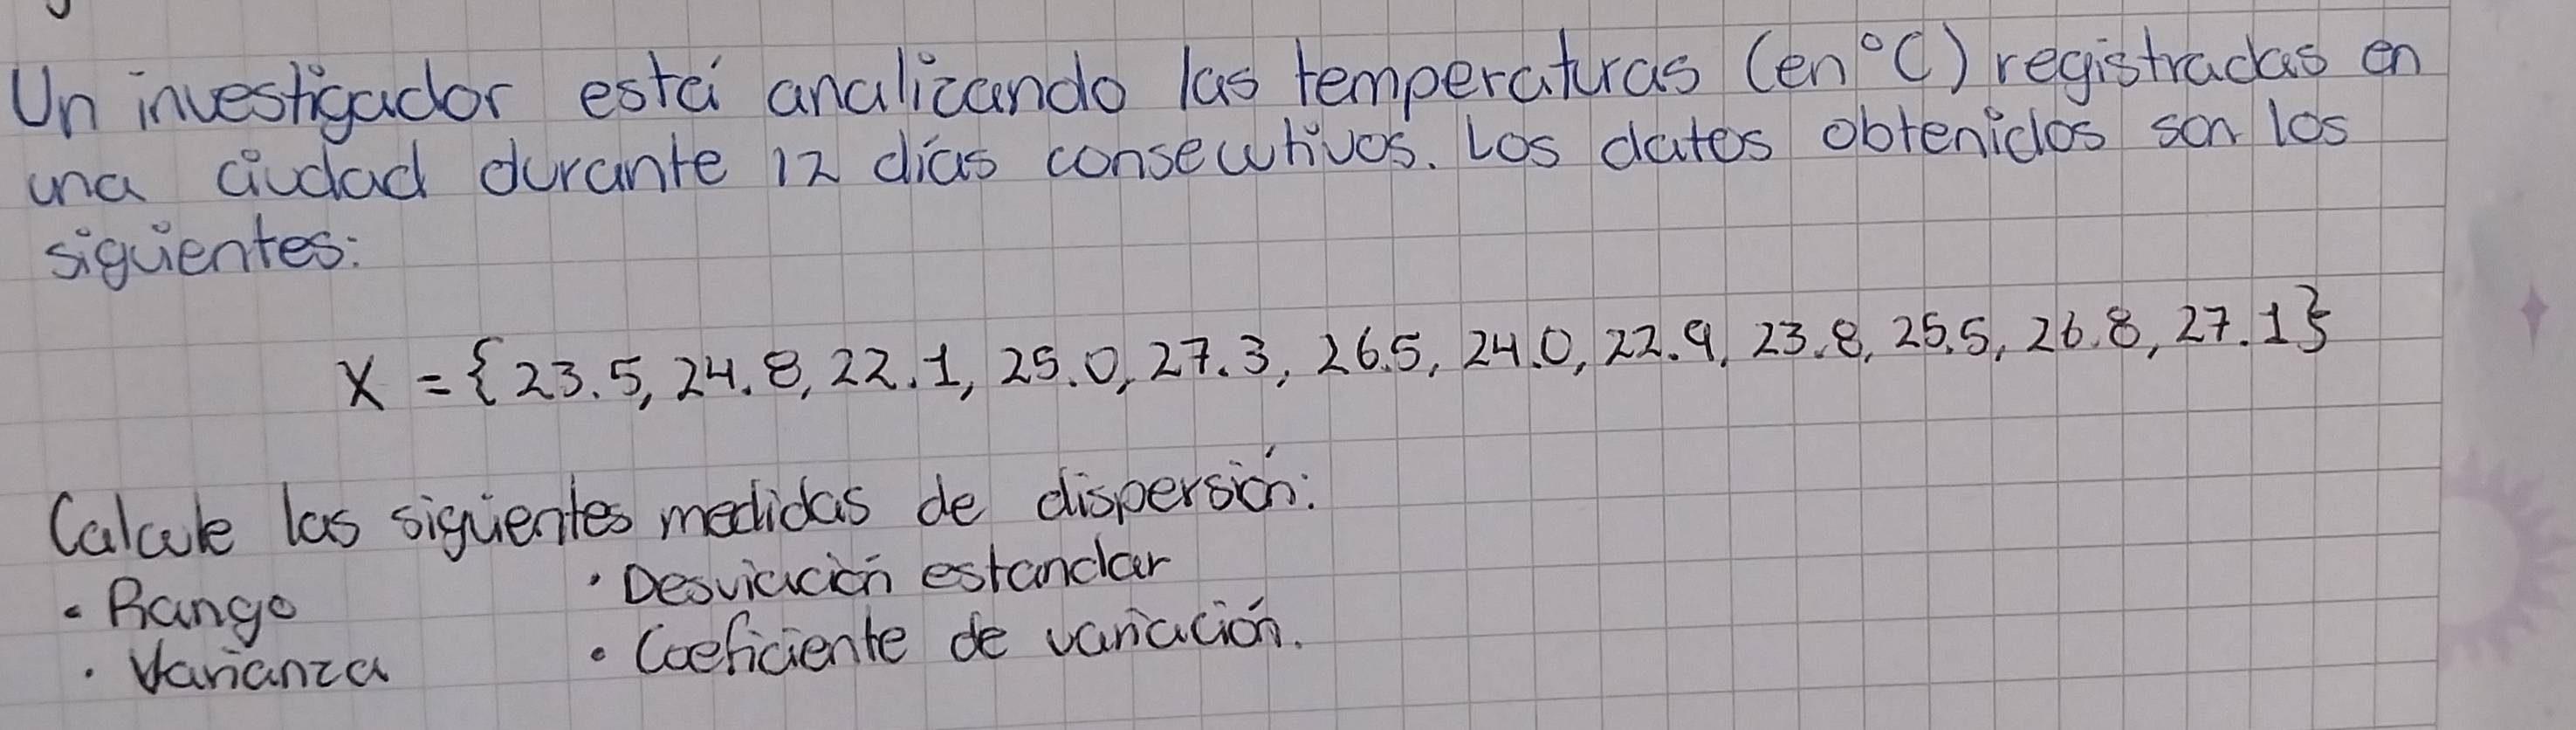 Un investigador está analizando las temperaturas (en °C) registradas en
una ciudad durante 12 días consecutivos. Los datos obtenidos son los
siguientes:
X = {23.5, 24.8, 22.1, 25.0, 27.3, 26.5, 24.0, 22.9, 23.8, 25.5, 26.8, 27.1}
Calcule las siguientes medidas de dispersión:
• Rango
• Desviación estandar
• Varianza
• Coeficiente de variación.